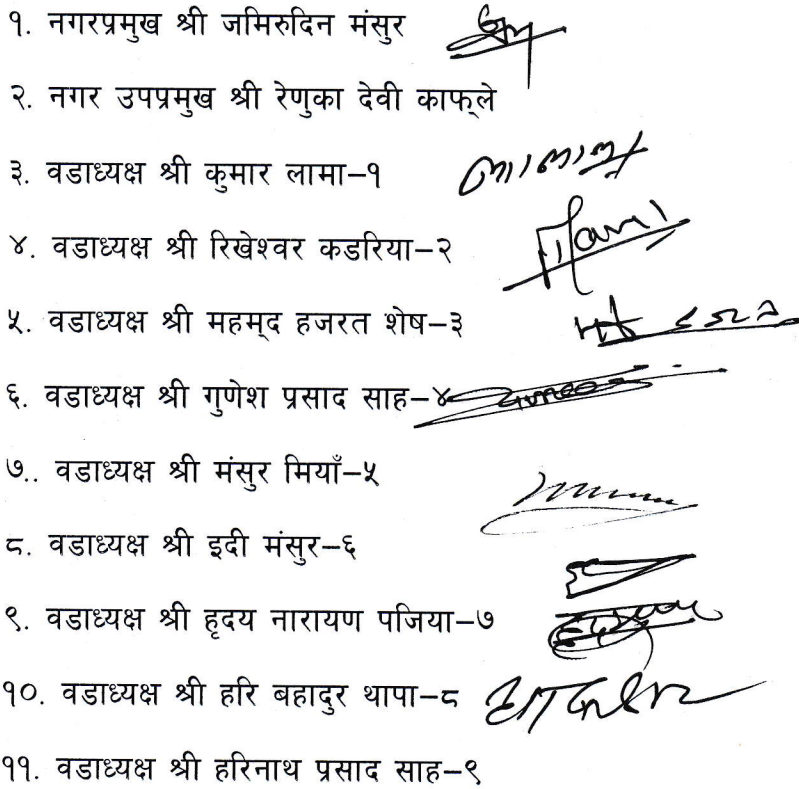 १. नगरप्रमुख श्री जमिरुदिन मंसुर
२. नगर उपप्रमुख श्री रेणुका देवी काफ्ले
३. वडाध्यक्ष श्री कुमार लामा–१
४. वडाध्यक्ष श्री रिखेश्वर कडरिया–२
५. वडाध्यक्ष श्री महमुद हजरत शेष–३
६. वडाध्यक्ष श्री गुणेश प्रसाद साह–४
७.. वडाध्यक्ष श्री मंसुर मियाँ–५
८. वडाध्यक्ष श्री इदी मंसुर–६
९. वडाध्यक्ष श्री हृदय नारायण पजिया–७
१०. वडाध्यक्ष श्री हरि बहादुर थापा–८
११. वडाध्यक्ष श्री हरिनाथ प्रसाद साह–९